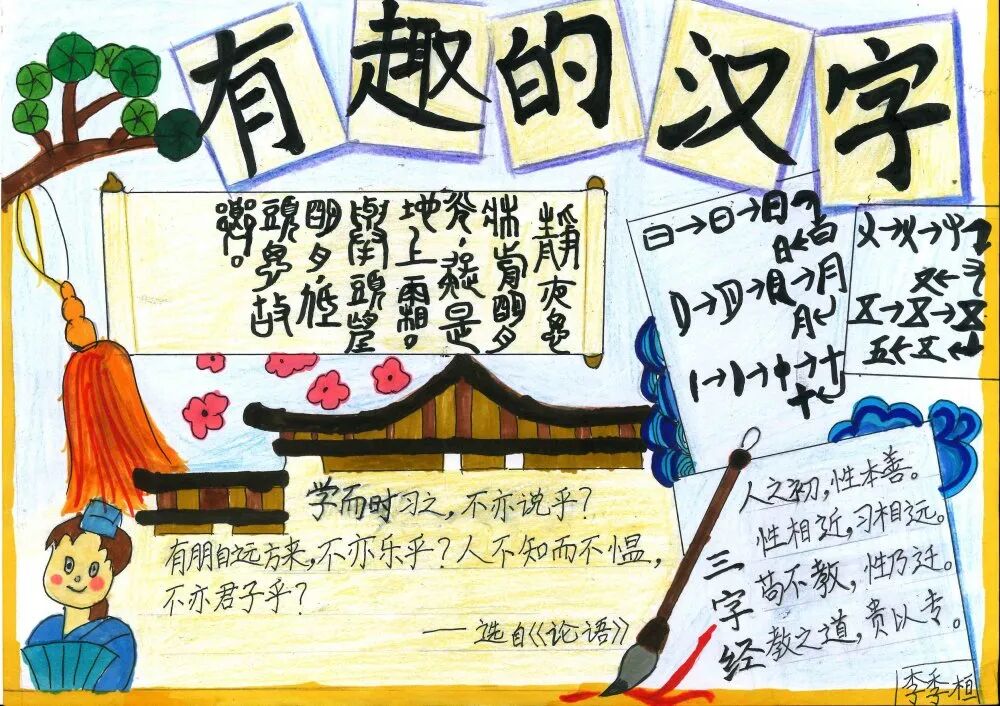 有趣的汉字
靜夜思
牀前朙月
光，疑是
地上霜。
舉頭望
朙月，低
頭思故
鄉。
日
月→月
十
十
五
学而时习之，不亦说乎？
有朋自远方来，不亦乐乎？人不知而不愠，
不亦君子乎？
——选自《论语》
三字经
人之初，性本善。
性相近，习相远。
苟不教，性乃迁。
教之道，贵以专。
李季桓